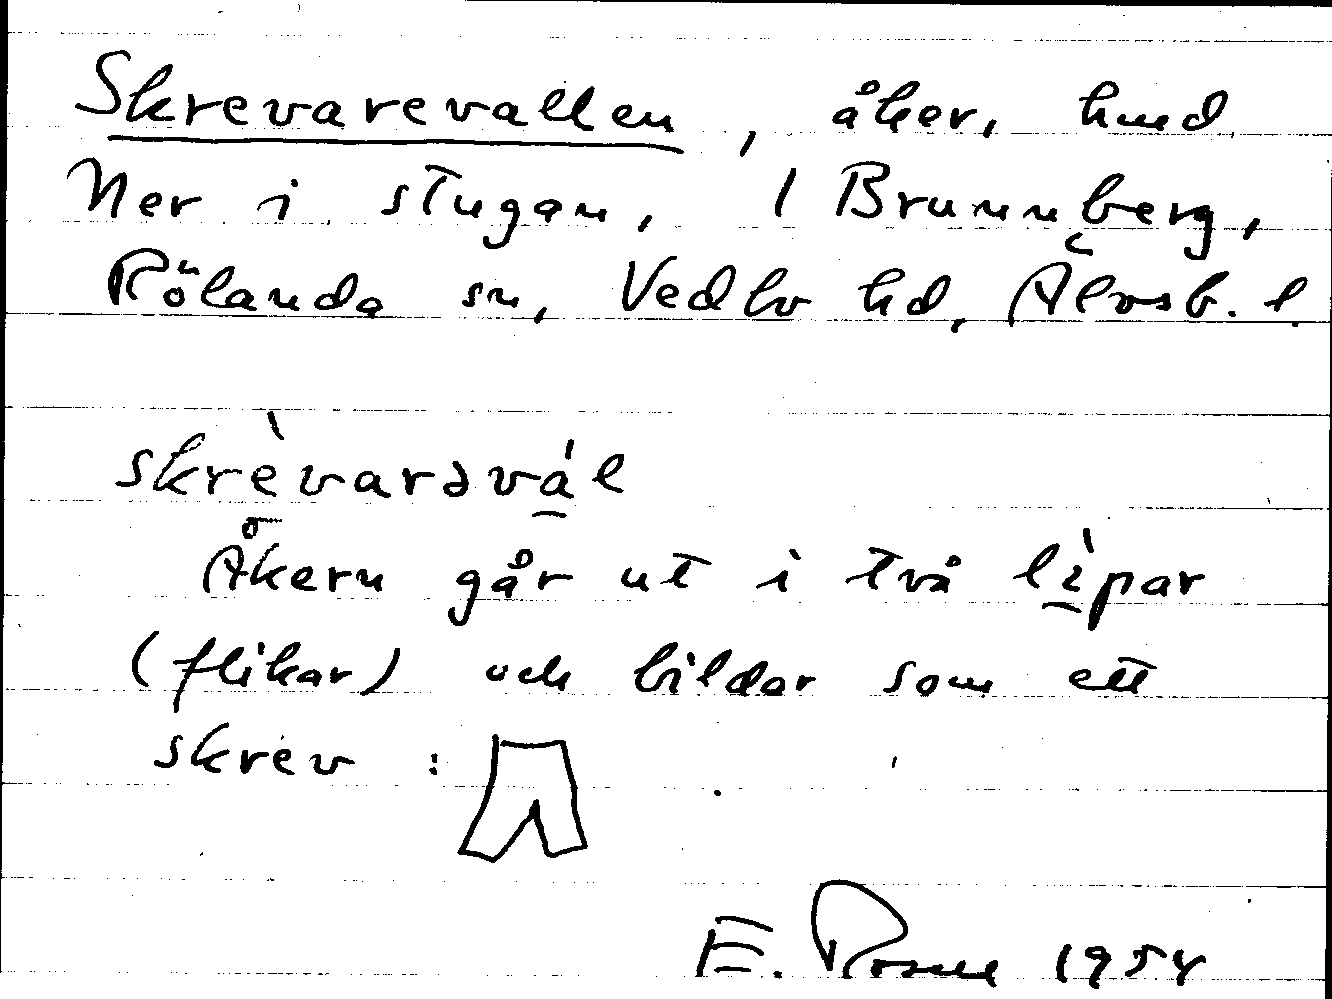 Skrevarevallen, åker, hmd
Ner i stugan, 1 Brunnberg,
Rölanda sn, Vedbo hd, Älvsb. l.
skrèvarəvál
Åkern går ut i två lìpar
(flikar) och bildar som ett
skrev :
E. 1954